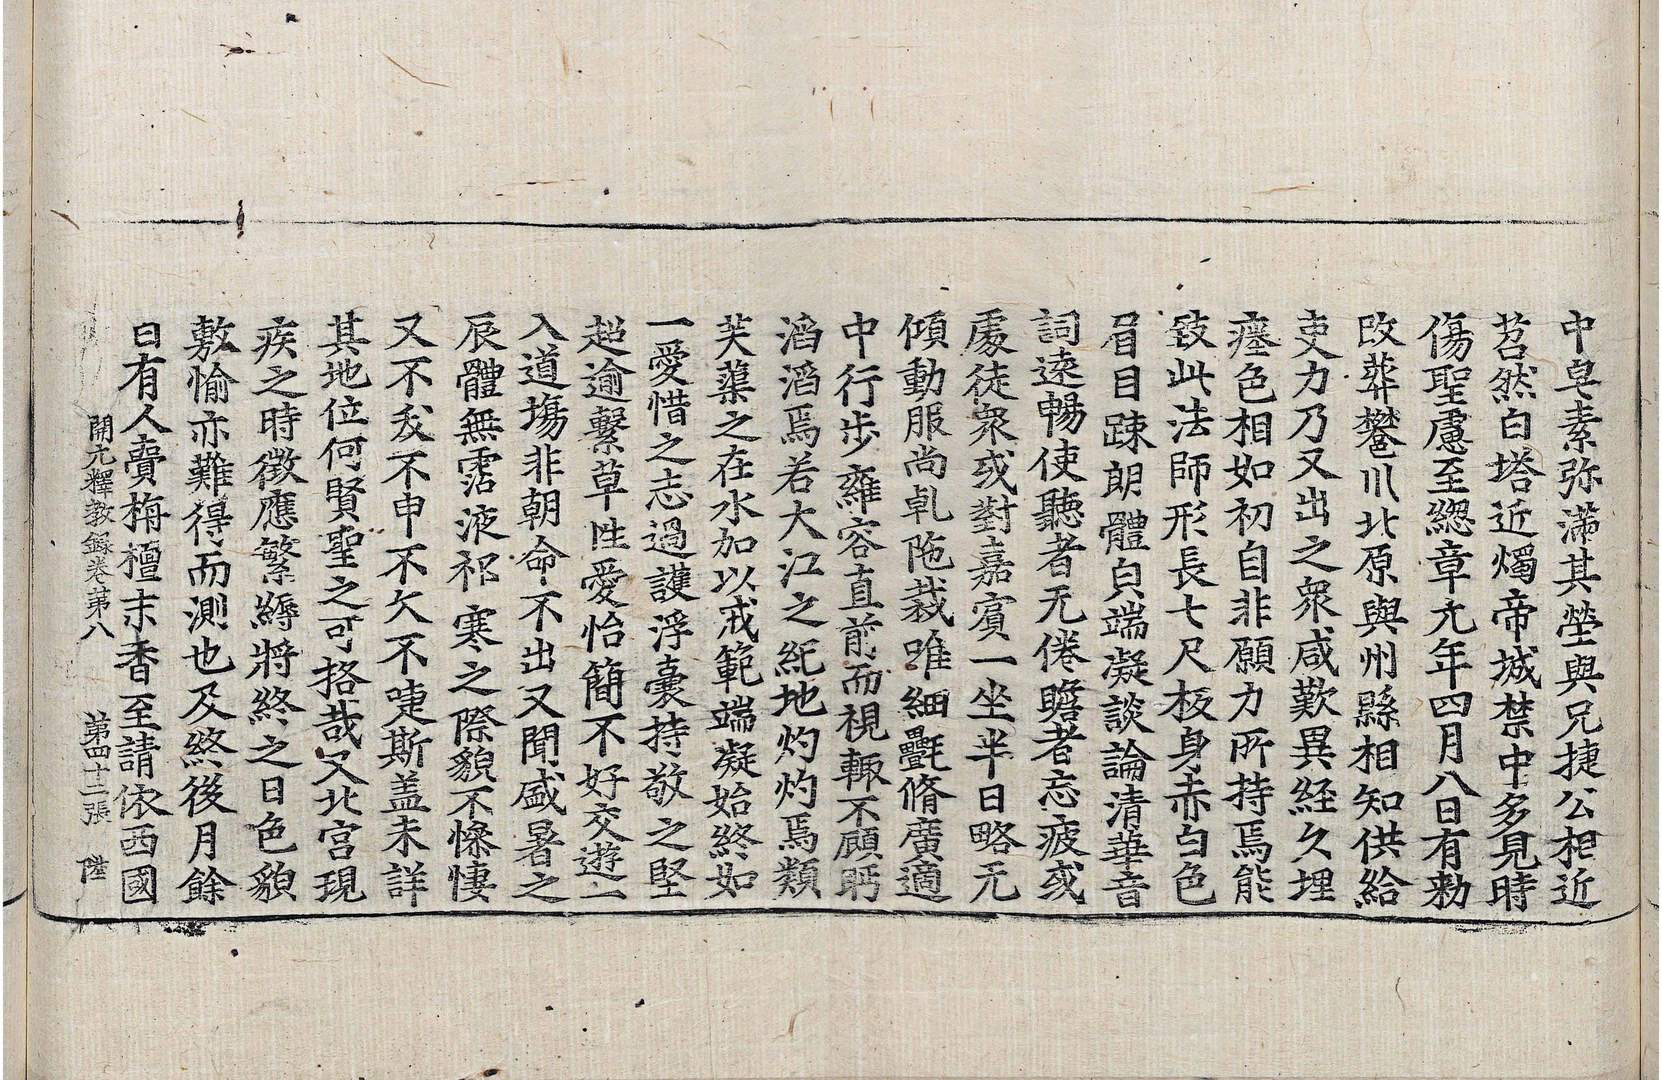 中皁素弥滿其塋與兄捷公相近
苕然白塔近燭帝城禁中多見時
傷聖慮至緫章元年四月八日有勑
改葬樊川北原與州縣相知供給
吏力乃又出之衆咸歎異経久埋
瘞色相如初自非願力所持焉能
致此法師形長七尺板身赤白色
眉目踈朗體皃端凝談論清華音
詞遠暢使聽者无倦瞻者忘疲或
處徒衆或對嘉賓一坐半日略无
傾動服尚乹陁裁唯細㲲脩廣適
中行步雍容直前而視輙不顧眄
滔滔焉若大江之紀地灼灼焉類
芙蕖之在水加以戒範端凝始終如
一愛惜之志過護浮囊持敬之堅
超逾繫草性愛怡簡不好交遊一
入道塲非朝命不出又聞盛暑之
辰體無霑液祁寒之際貌不慘悽
又不㳄不申不欠不嚏斯盖未詳
其地位何賢聖之可挌哉又北宮現
疾之時徵應繁縟將終之日色貌
敷愉亦難得而測也及終後月餘
日有人賷栴檀末香至請依西國
開元釋教錄卷第八 第四十二張 陞